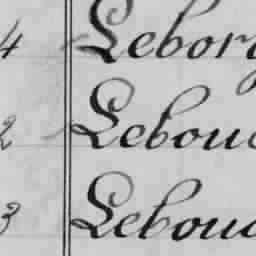 4 Leborg
2 Lebouc
3 Lebouc